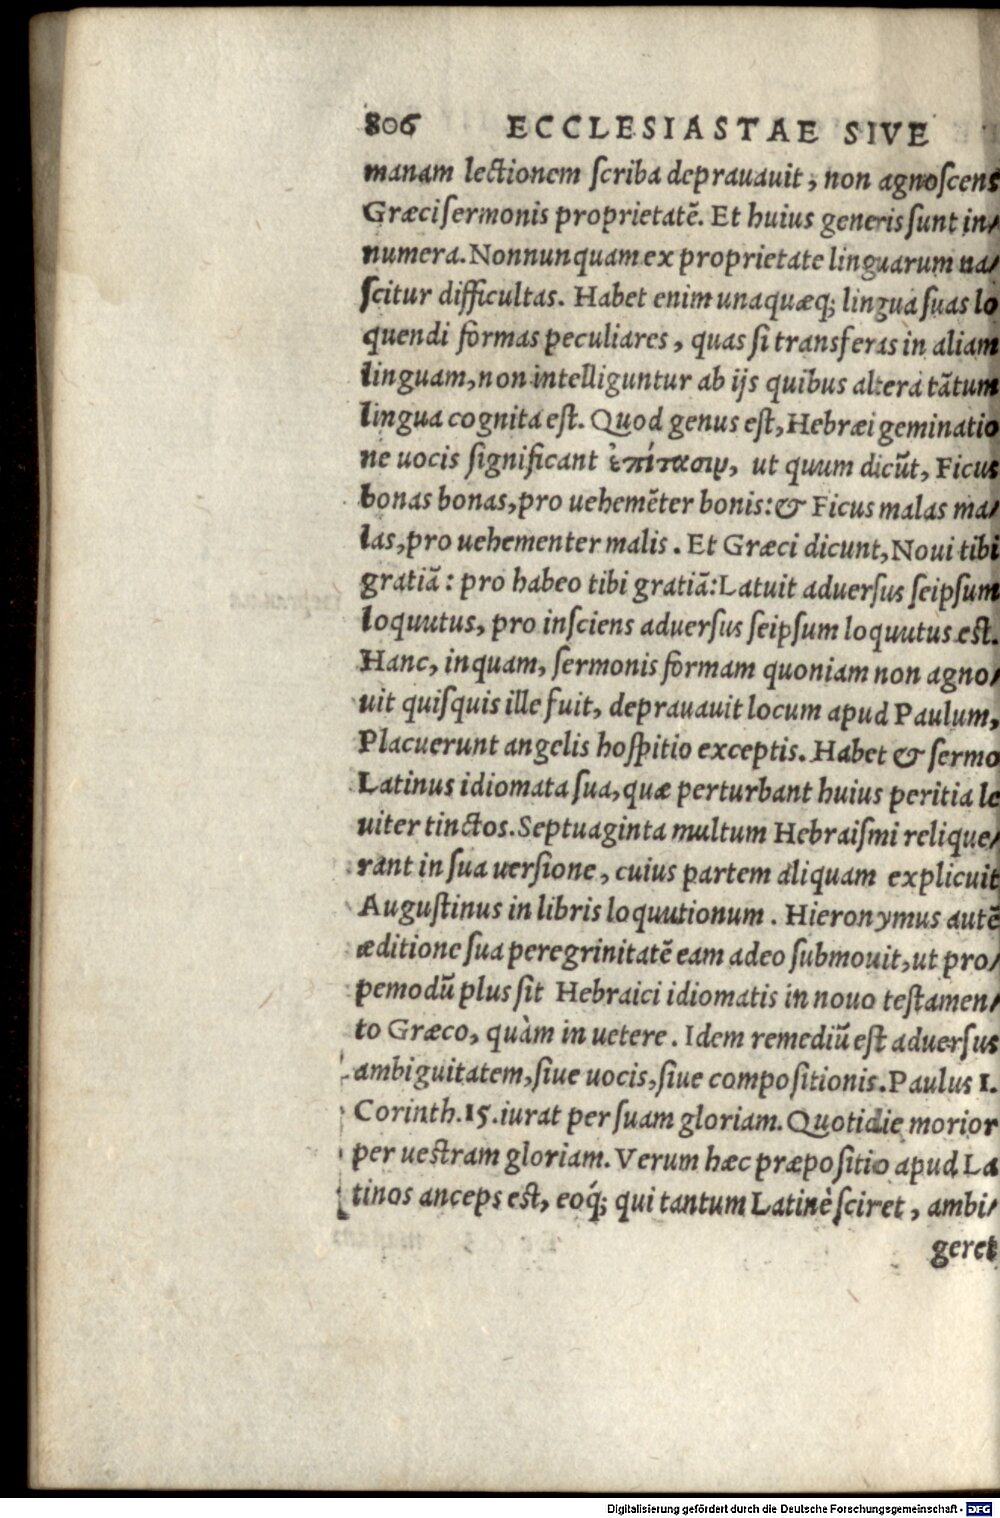 806 ECCLESIASTAE SIVE
manam lectionem ſcriba deprauauit, non agnoſcens
Græci ſermonis proprietatē. Et huius generis ſunt in/
numera. Nonnunquam ex proprietate linguarum na/
ſcitur difficultas. Habet enim unaquæq; lingua ſuas lo
quendi formas peculiares, quas ſi transferas in aliam
linguam, non intelliguntur ab ijs quibus altera tātum
lingua cognita eſt. Quod genus eſt, Hebræi geminatio
ne uocis ſignificant ἐπίτασιν, ut quum dicūt, Ficus
bonas bonas, pro uehemēter bonis: & Ficus malas ma/
las, pro uehementer malis. Et Græci dicunt, Noui tibi
gratiā: pro habeo tibi gratiā: Latuit aduerſus ſeipſum
loquutus, pro inſciens aduerſus ſeipſum loquutus eſt.
Hanc, inquam, ſermonis formam quoniam non agno/
uit quiſquis ille fuit, deprauauit locum apud Paulum,
Placuerunt angelis hoſpitio exceptis. Habet & ſermo
Latinus idiomata ſua, quæ perturbant huius peritia le
uiter tinctos. Septuaginta multum Hebraiſmi relique/
rant in ſua uerſione, cuius partem aliquam explicuit
Auguſtinus in libris loquutionum. Hieronymus autē
æditione ſua peregrinitatē eam adeo ſubmouit, ut pro/
pemodū plus ſit Hebraici idiomatis in nouo teſtamen/
to Græco, quàm in uetere. Idem remediū eſt aduerſus
ambiguitatem, ſiue uocis, ſiue compoſitionis. Paulus 1.
Corinth. 15. iurat per ſuam gloriam. Quotidie morior
per ueſtram gloriam. Verum hæc præpoſitio apud La
tinos anceps eſt, eoq́; qui tantum Latinè ſciret, ambi/
geret
Digitalisierung gefördert durch die Deutsche Forschungsgemeinschaft - DFG